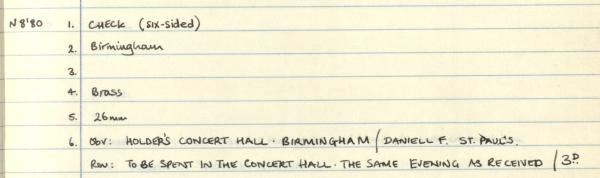 N8'80 1. CHECK (six-sided)
2. Birmingham
3.
4. Brass
5. 26mm
6. Obv: HOLDER'S CONCERT HALL · BIRMINGHAM / DANIELL F. ST. PAUL'S.
Rev: TO BE SPENT IN THE CONCERT HALL · THE SAME EVENING AS RECEIVED / 3D.